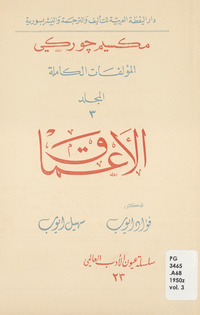 دار اليقظة العربية للتأليف والترجمة والنشر بسورية
مكسيم چوركي
المؤلفات الكاملة
المجلد
٣
الأعماق
الدكتور
فؤاد ايوب سهيل ايوب
سلسلة عيون الأدب العالمي
٢٣
PG
3465
.A68
1950z
vol. 3